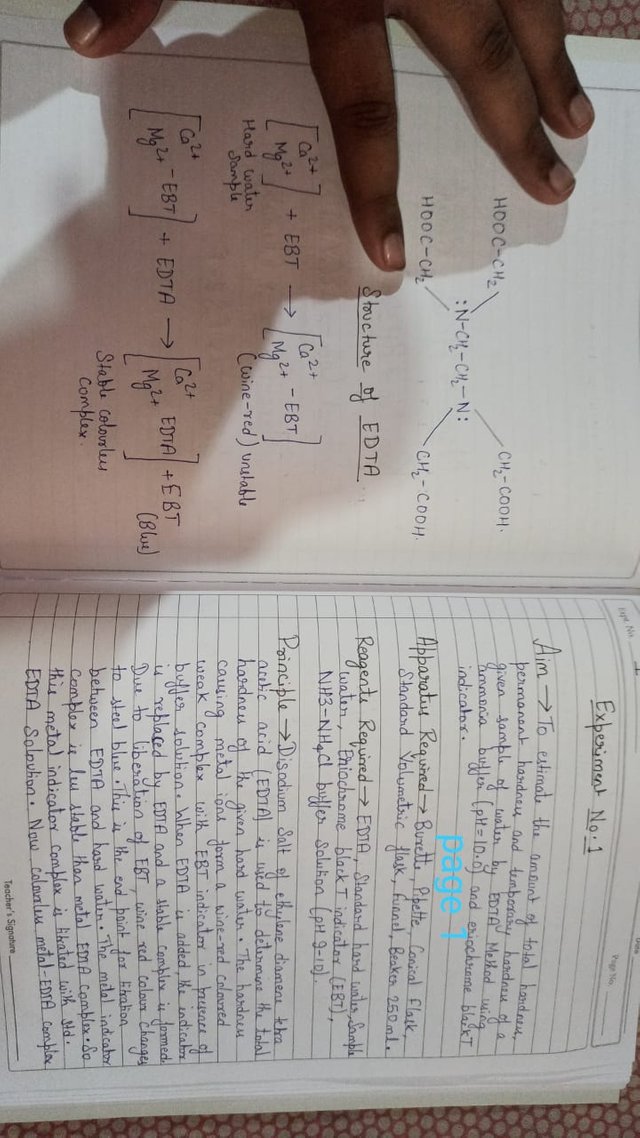 HOOC-CH2
CH2-COOH.
:N-CH2-CH2-N:
HOOC-CH2
CH2-COOH.
Structure of EDTA.
[Ca2+ Mg2+] + EBT → [Ca2+ Mg2+ - EBT]
Hard water
Sample
(wine-red) unstable
[Ca2+ Mg2+ - EBT] + EDTA → [Ca2+ Mg2+ EDTA] + EBT
(Blue)
Stable colourless
Complex.
Expt. No. 1
Date
Page No.
Experiment No:1
Aim → To estimate the amount of total hardness,
permanent hardness and temporary hardness of a
given sample of water by EDTA Method using
ammonia buffer (pH=10.0) and eriochrome black T
indicator.
page 1
Apparatus Required → Burette, Pipette, Conical flask,
Standard Volumetric flask, funnel, Beaker 250ml.
Reagents Required → EDTA, Standard hard water, Sample
water, Eriochrome black T indicator (EBT),
NH3-NH4Cl buffer Solution (pH 9-10).
Principle → Disodium Salt of ethylene diamene tetra
acetic acid (EDTA) is used to determine the total
hardness of the given hard water. The hardness
causing metal ions form a wine-red coloured
weak complex with EBT indicator in presence of
buffer solution. When EDTA is added, the indicator
is replaced by EDTA and a stable complex is formed.
Due to liberation of EBT, wine red colour changes
to steel blue. This is the end point for titration
between EDTA and hard water. The metal indicator
complex is less stable than metal EDTA complex. So
this metal indicator complex is titrated with std.
EDTA Solution. Now colourless metal-EDTA complex
Teacher's Signature